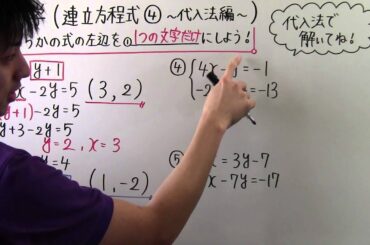 (連立方程式④ 〜代入法編〜)
代入法で
解いてね!
かの式の左辺を 1つの文字だけ にしよう!
y+1
-2y=5
(3, 2)
+1)-2y=5
y+3-2y=5
y=2, x=3
y=4
(1, -2)
④ 4x-y=-1
-2 =-13
⑤ =3y-7
x-7y=-17